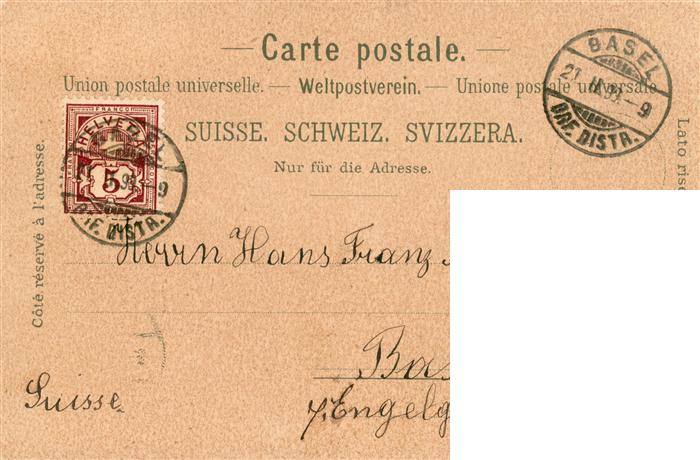 Carte postale.
Union postale universelle. — Weltpostverein. — Unione postale universale
SUISSE. SCHWEIZ. SVIZZERA.
Nur für die Adresse.
Côté réservé à l'adresse.
Lato rise
FRANCO
HELVETIA
5
BASEL
BRF. DISTR.
BASEL
21. II. 9
BRF. DISTR.
Herrn Hans Franz
Ba
Suisse
z. Engelg